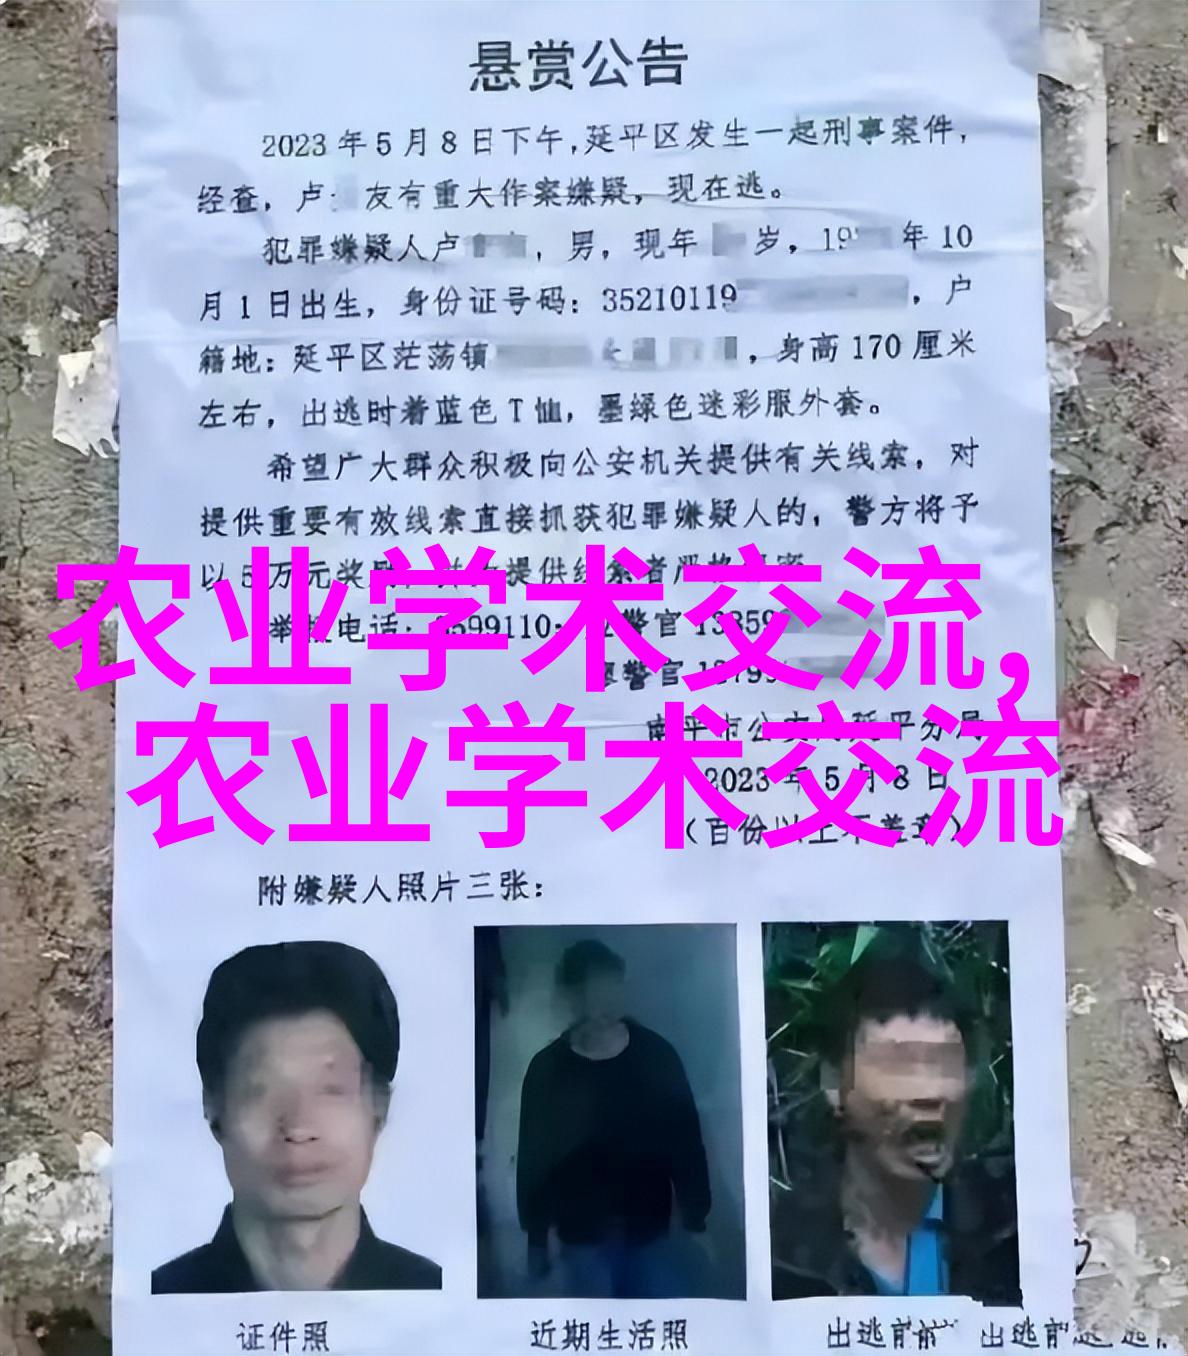 悬赏公告
2023年5月8日下午,延平区发生一起刑事案件,
经查，卢 友有重大作案嫌疑，现在逃。
犯罪嫌疑人卢 ，男，现年 岁，19 年10
月1日出生，身份证号码：35210119 ，户
籍地：延平区茫荡镇 ，身高170厘米
左右，出逃时着蓝色T恤，墨绿色迷彩服外套。
希望广大群众积极向公安机关提供有关线索，对
提供重要有效线索直接抓获犯罪嫌疑人的，警方将予
以5万元奖 提供线索者严
农业学术交流,
举报电话： 599110； 警官13859
警官13799
农业学术交流
南平市公安局延平分局
2023年5月8日
（百份以上不盖章）
附嫌疑人照片三张：
证件照 近期生活照 出逃前 出逃前